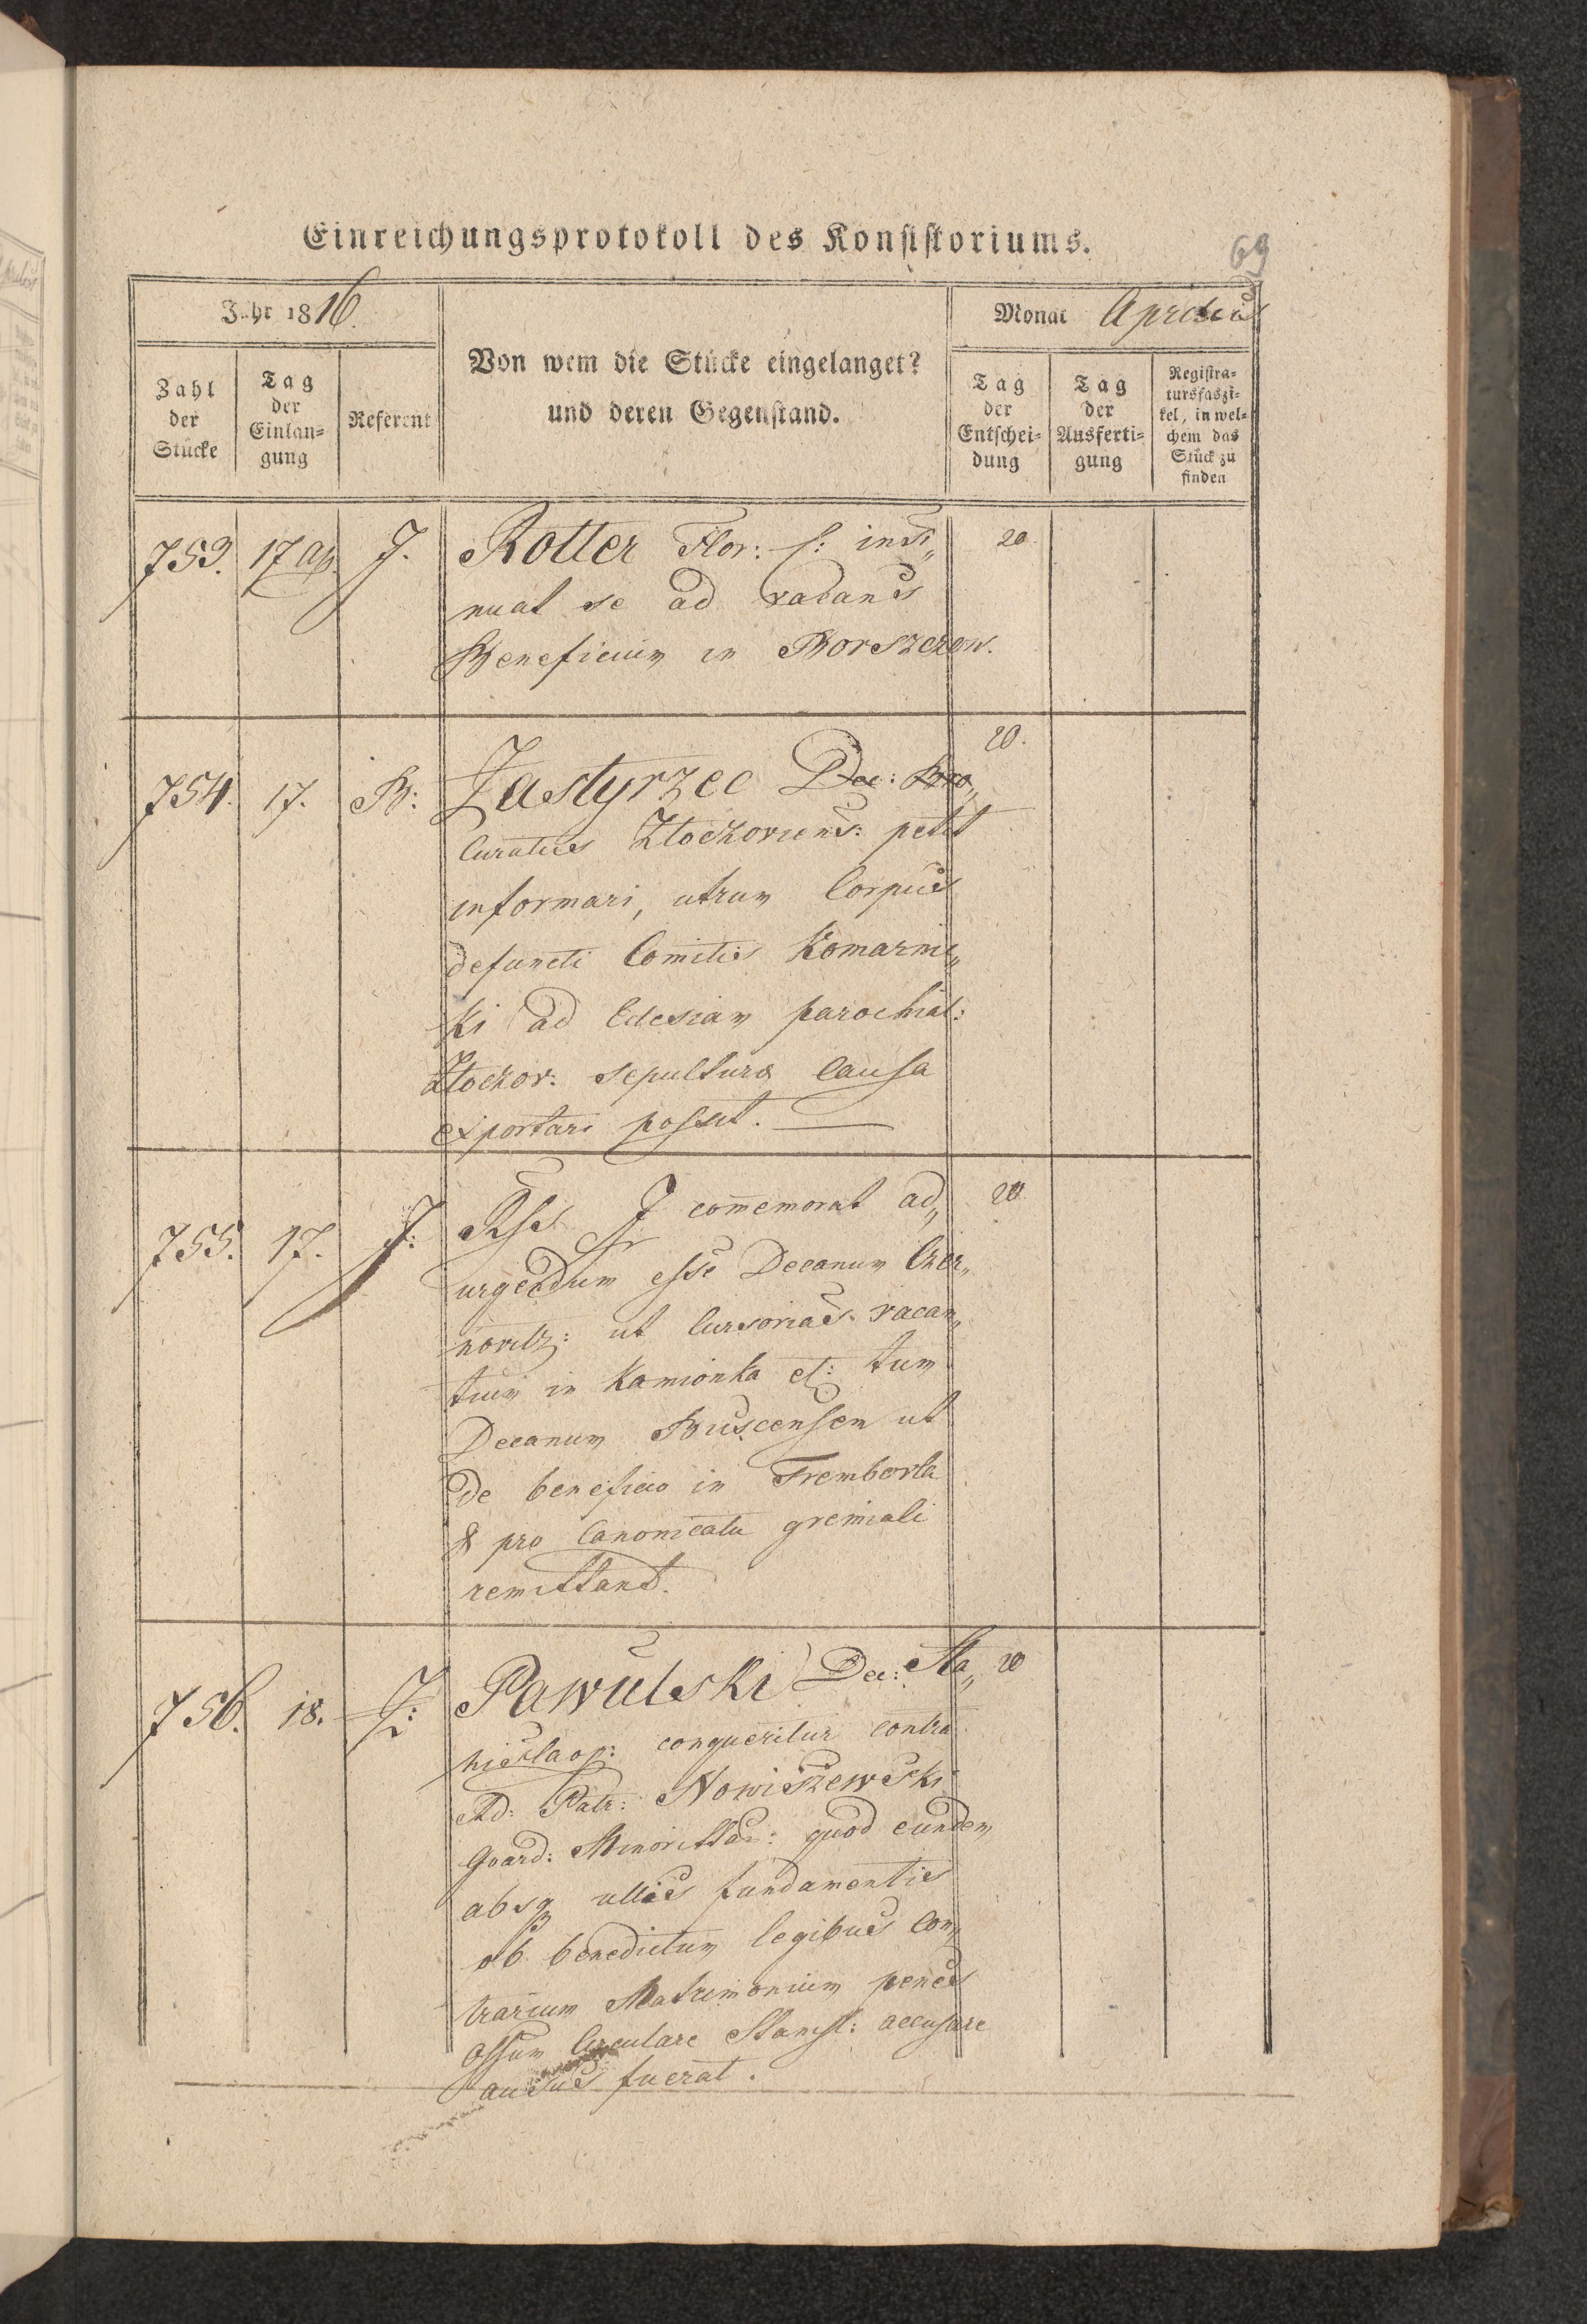 Einreichungsprotokoll des Konsistoriums.
69
Jahr 1816.
Monat Aprilis
Zahl der Stücke
Tag der Einlan-
gung
Referent
Von wem die Stücke eingelanget?
und deren Gegenstand.
Tag der Entschei-
dung
Tag der Ausferti-
gung
Registra-
tursfaszi-
kel, in wel-
chem das
Stück zu
finden
753. 17 Ap. J. Rotter Flor: insi„ 20.
nuat se ad vacans
Beneficium in Borszczow.
754. 17. B: Zastyrzec Dec: 20.
Curatus Zloczoviens: petit
informari, utrum Corpus
defuncti Comitis Komarnic„
ki ad Eclesiam parochial:
Zloczov: sepulturæ causa
exportari possit.
755. 17. J: J commemorat ad„ 20
urgendum esse Decanum Czer„
novitz: ut Cursorias vacan„
tium in Kamionka et: tum
Decanum Buscensem ut
de beneficio in Trembovla
& pro Canonicatu gremiali
remittant.
756. 18. Z: Pawulski Dec: Sta„ 20
nislaop: conqueritur contra
Ad: Patr: Nowiszewski
Guard: Minorittar: quod eundem
absq ullis fundamentis
ob benedictum legibus con„
trarium Matrimonium penes
Offum Circulare Stanisl: accusare
ausus fuerat.